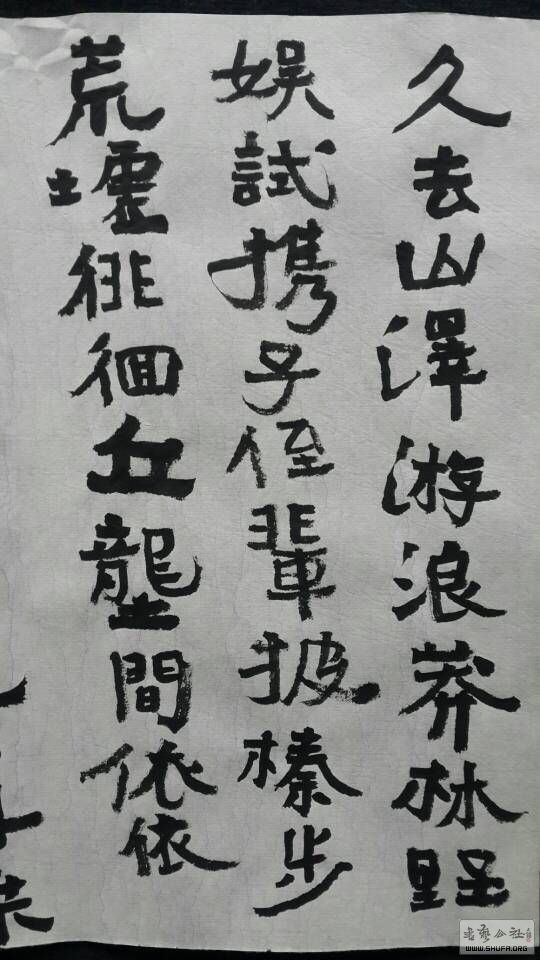 久去山澤游浪莽林野
娱試携子侄輩披榛步
荒墟徘徊丘壟間依依
WWW.SHUFA.ORG